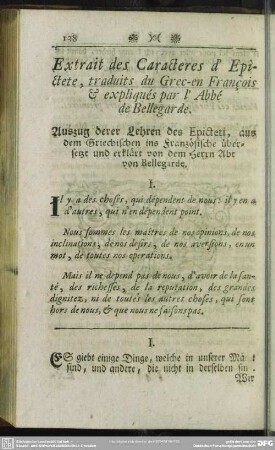 138
Extrait des Caracteres d' Epi-
ctete, traduits du Grec-en François
& expliqués par l' Abbé
de Bellegarde.
Auszug derer Lehren des Epicteti, aus
dem Griechischen ins Französische über-
setzt und erklärt von dem Herrn Abt
von Bellegarde.
I.
Il y a des choses, qui dépendent de nous: il y en a
d'autres, qui n'en dependent point.
Nous sommes les maitres de nos opinions, de nos
inclinations, de nos desirs, de nos aversions, en un
mot, de toutes nos operations.
Mais il ne depend pas de nous, d'avoir de la san-
té, des richesses, de la reputation, des grandes
dignitez, ni de toutes les autres choses, qui sont
hors de nous, & que nous ne faisons pas.
I.
ES giebt einige Dinge, welche in unserer Ma t
sind, und andere, die nicht in derselben sin.
Wir
DFG